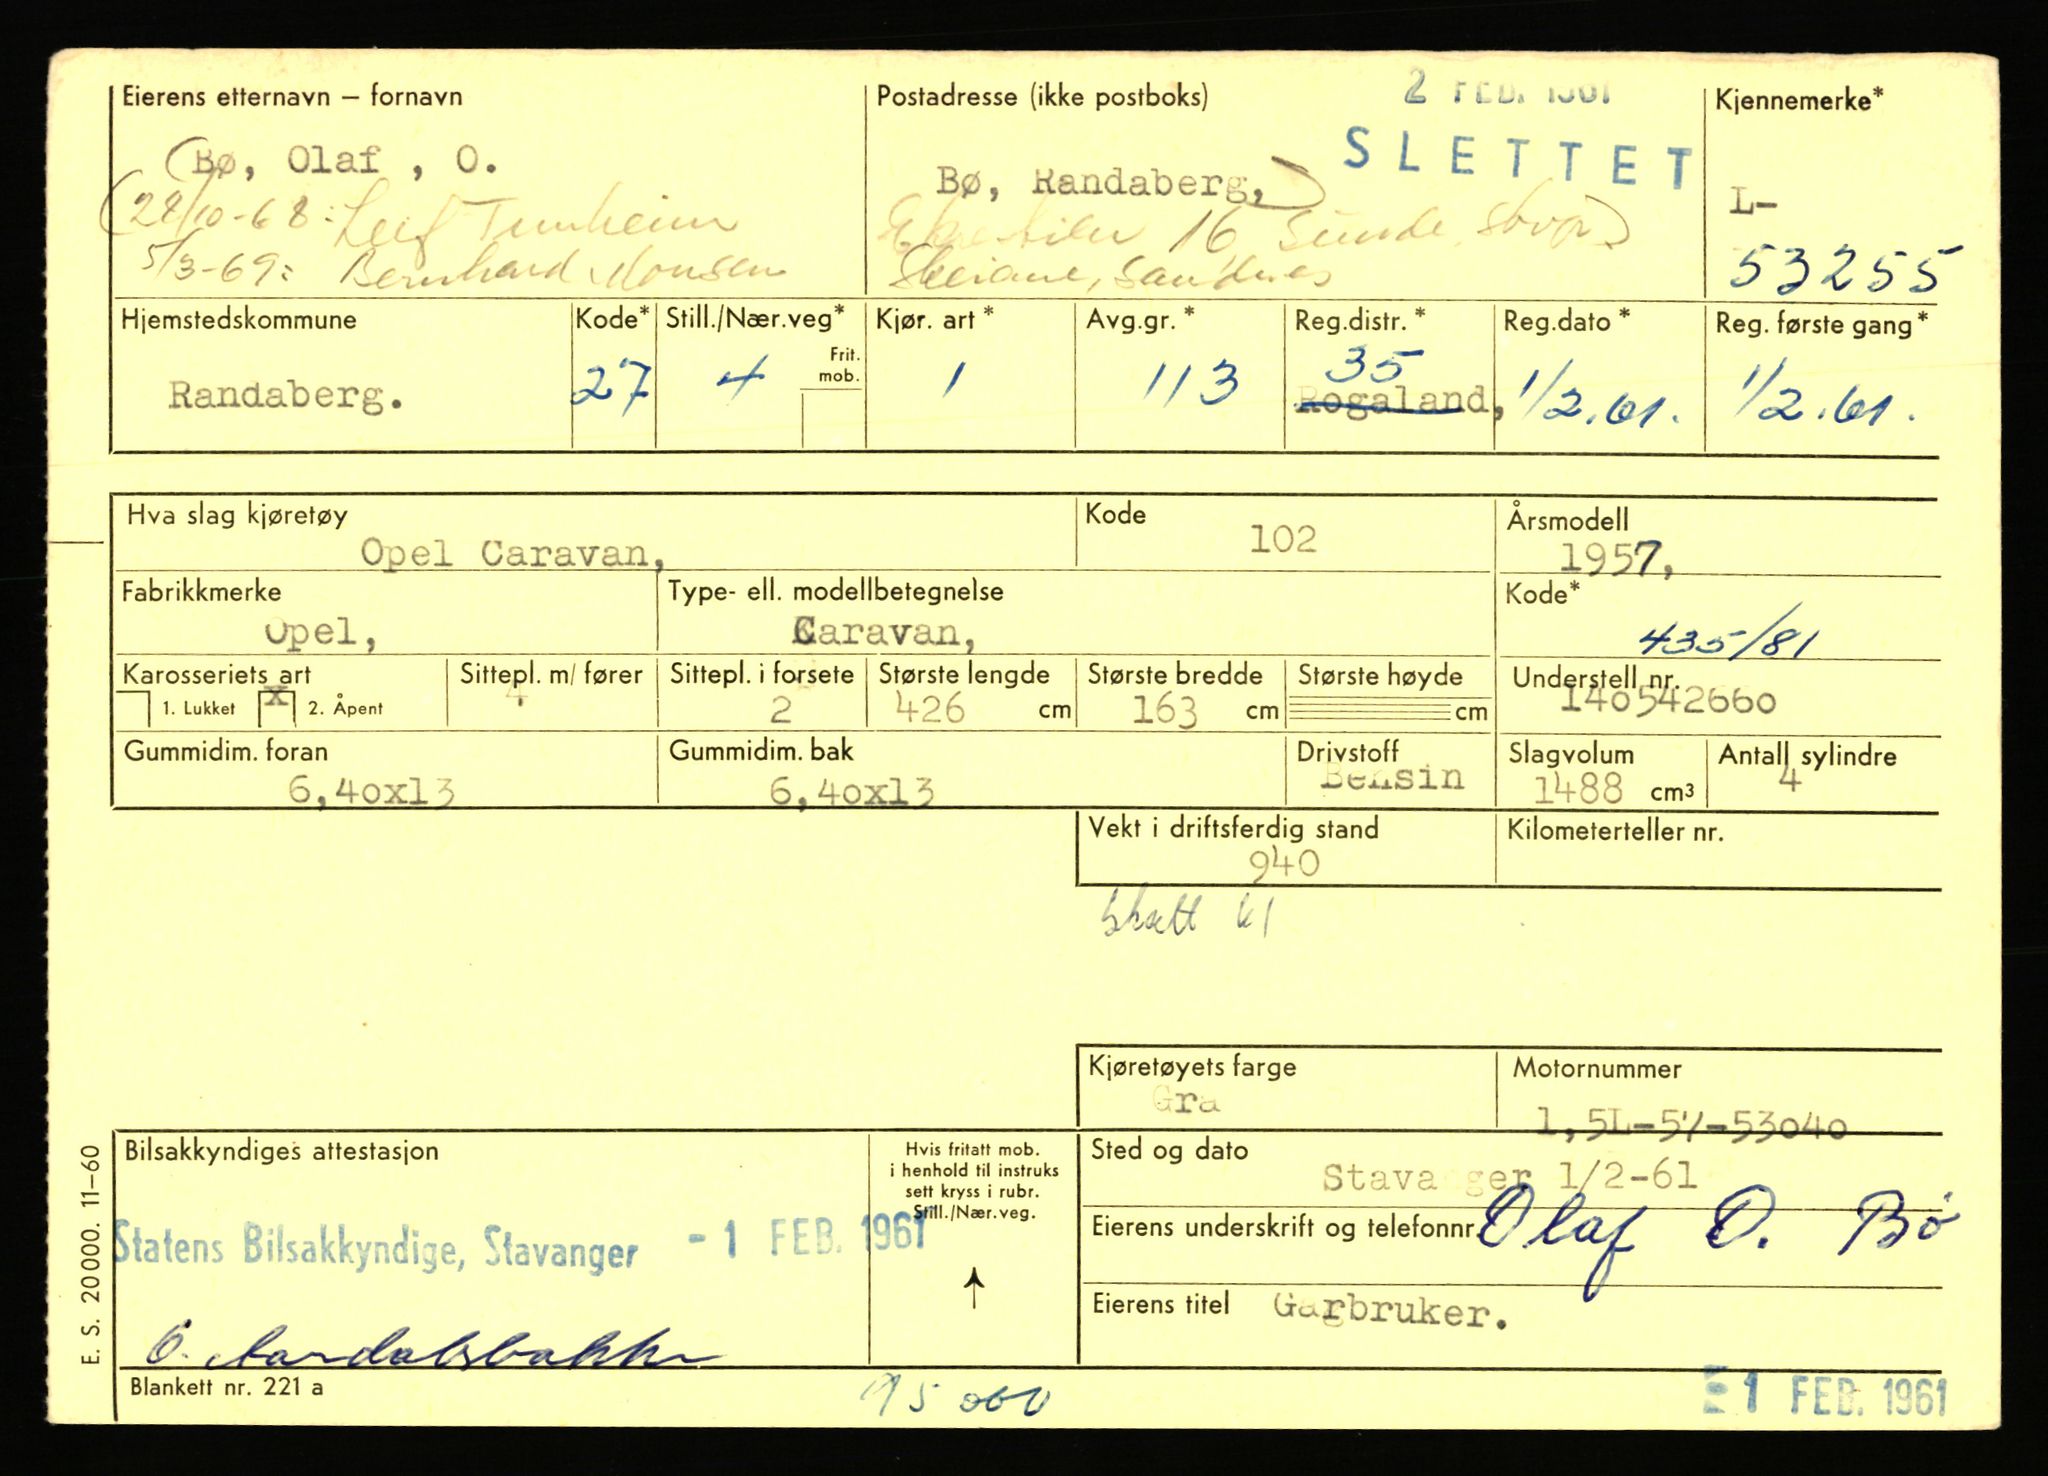 Eierens etternavn – fornavn
Postadresse (ikke postboks)
2 FEB. 1961
Kjennemerke*
SLETTET
(Bø, Olaf , O.
Bø, Randaberg,)
L-
(28/10-68: Leif Tunheim
16 Sunde, Stvgr)
5/3-69: Bernhard Monsen
Skeiane, Sandnes
53255
Hjemstedskommune
Kode*
Still./Nær.veg*
Kjør. art *
Avg.gr. *
Reg.distr. *
Reg.dato *
Reg. første gang*
Frit. mob.
35
Randaberg.
27
4
1
113
Rogaland,
1/2.61.
1/2.61.
Hva slag kjøretøy
Opel Caravan,
Kode
102
Årsmodell
1957,
Fabrikkmerke
Opel,
Type- ell. modellbetegnelse
Caravan,
Kode*
435/81
Karosseriets art
1. Lukket
x
2. Åpent
Sittepl. m/ fører
4
Sittepl. i forsete
2
Største lengde
426 cm
Største bredde
163 cm
Største høyde
cm
Understell nr.
140542660
Gummidim. foran
6,40x13
Gummidim. bak
6,40x13
Drivstoff
Bensin
Slagvolum
1488 cm³
Antall sylindre
4
Vekt i driftsferdig stand
940
Kilometerteller nr.
skatt kl
Kjøretøyets farge
Grå
Motornummer
1,5L-57-53040
Bilsakkyndiges attestasjon
Hvis fritatt mob.
i henhold til instruks
sett kryss i rubr.
Still./Nær.veg.
Sted og dato
Stavanger 1/2-61
Statens Bilsakkyndige, Stavanger - 1 FEB. 1961
Eierens underskrift og telefonnr.
Olaf O. Bø
Eierens titel
Garbruker.
O. Aardalsbakke
E. S. 20000. 11-60
Blankett nr. 221 a
95 000
- 1 FEB. 1961